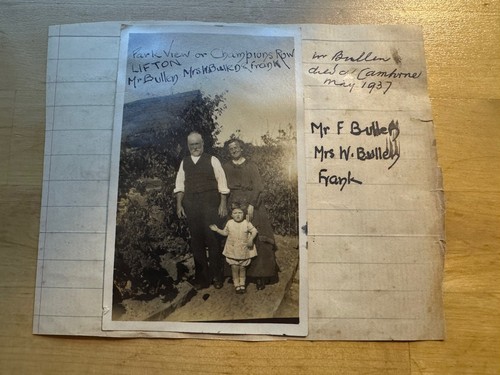 Park View or Champions Row
LIFTON
Mr Bullen Mrs W Bullen Frank
Mr Bullen
died at Camborne
May 1937
Mr F Bullen
Mrs W. Bullen
Frank